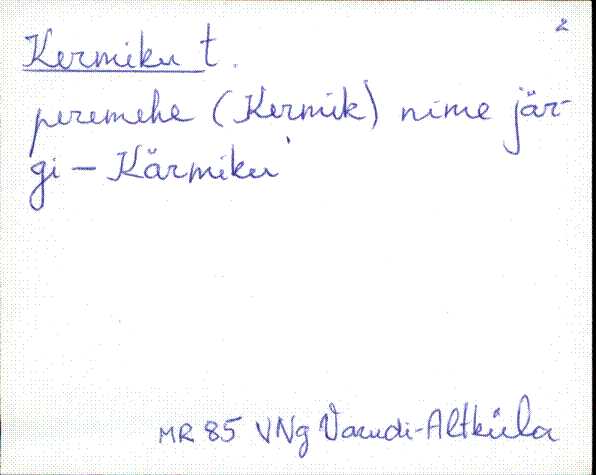 2
Kermiku t.
peremehe (Kermik) nime jär-
gi – Kärmiku
MR 85 VNg Varudi-Altküla